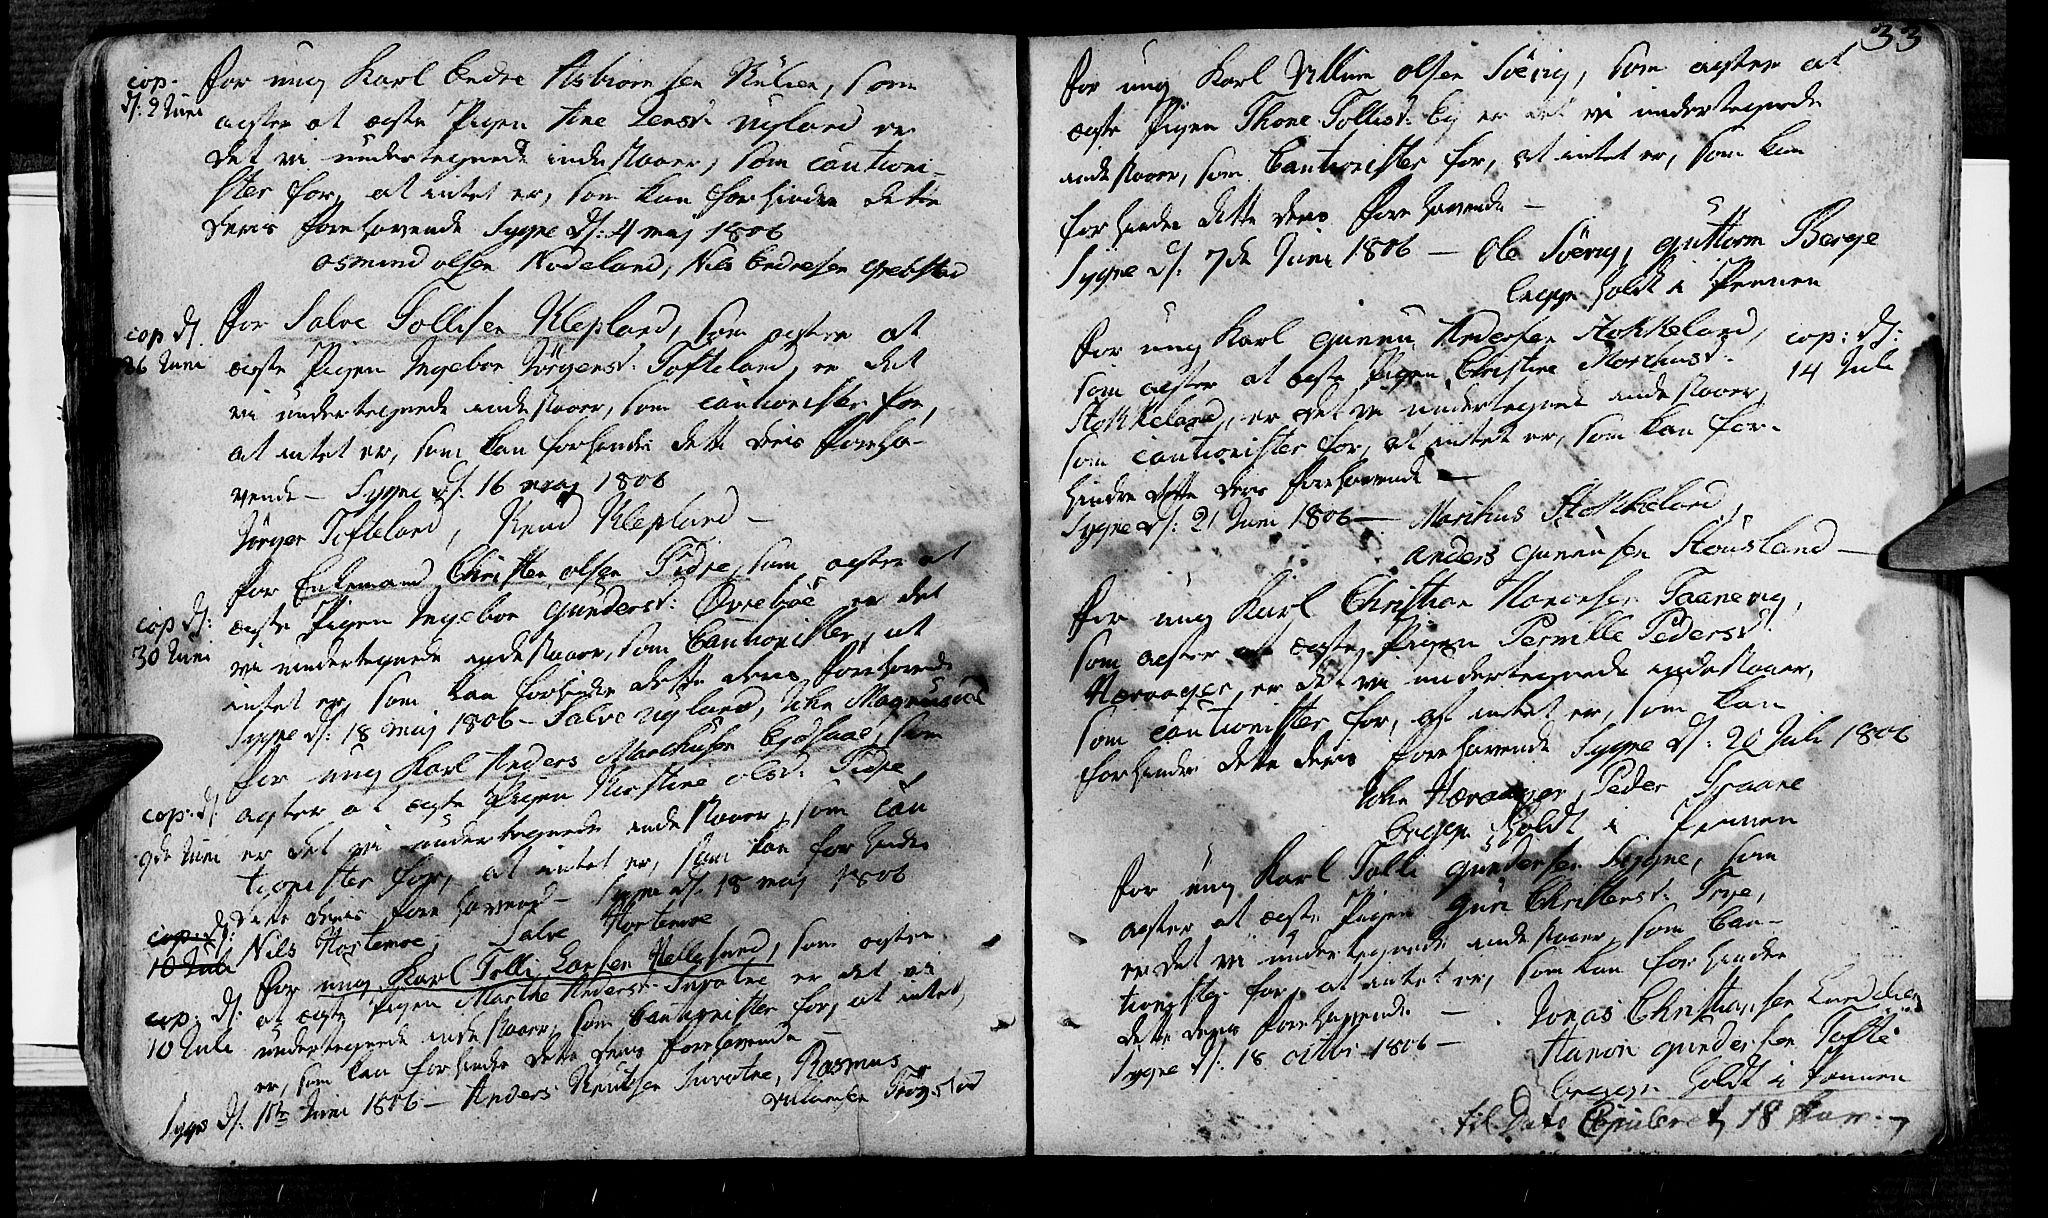 cop.
d: 2 Juni
For ung Karl Endre Asbiornsen Külien, som
agter at ægte Pigen Ane Jensd. Ugland er
det vi undertegnede indestaaer, som cautioni-
ster for, at intet er, som kan forhindre dette
deres forehavende Sygne d: 4 maj 1806
Osmund Olsen Nodeland, Nils Endresen
cop d:
26 Juni
For Salve Tollisen Klepland, som agter at
ægte Pigen Ingebor Jörgensd. Tofteland, er det
vi undertegnede indestaaer, som cautionister for,
at intet er, som kan forhindre dette deres foreha-
vende - Sygne d: 16 maj 1806
Jörgen Tofteland, Knud Klepland -
cop d:
30 Juni
For Enkemand Christen Olsen Tidje, som agter at
ægte Pigen Ingebor Gundersd. Øvrebøe er det
vi undertegnede indestaaer, som Cautionister, at
intet er, som kan forhindre dette deres forehavende
Sygne d: 18 maj 1806 - Salve Ugland,
cop. d:
9de Juni
For ung Karl Anders Marchusen som
agter at ægte Pigen Kirstine Olsd. Tidje
er det vi undertegnede indestaaer, som cau
tionister for, at intet er, som kan forhindre
dette deres forehavend - Sygne d: 18 maj 1806
Nils Hortemoe, Salve Hortemoe
cop. d:
10 Juli
cop. d:
10 Juli
For ung Karl Tolli Larsen som agter
at ægte Pigen Marthe Andersd. er det vi
undertegnede indestaaer, som Cautionister for, at intet
er, som kan forhindre dette deres forehavende -
Sygne d: Juni 1806 - Anders Knutsen Rasmus
Villumsen
33
For ung Karl Villum Olsen Søevig, som agter at
ægte Pigen Thone Tollisd. Eg er det vi undertegnede
indestaaer, som Cautionister for, at intet er, som kan
forhindre dette deres forehavende -
Sygne d: 7de Juni 1806 - Ole Søevig, Guttorm Berge
begge holdt i Pennen
For ung Karl Gunnu Andersen Stokkeland,
cop: d:
14 Juli
som agter at ægte Pigen Christine Marchusd.
Stokkeland, er det vi undertegnede indestaaer,
som cautionister for, at intet er, som kan for-
hindre dette deres forehavende -
Sygne d: 21 Juni 1806 - Markus Stokkeland,
Anders Gunnusen Stousland -
For ung Karl Christian Haaversen Taanevig,
som agter at ægte Pigen Pernille Pedersd.
er det vi undertegnede indestaaer,
som cautionister for, at intet er, som kan
forhindre dette deres forehavende Sygne d: 20 Juli 1806
Peder
begge holdt i Pennen
For ung Karl Tolli Gundersen Sygne, som
agter at ægte Pigen Guri Christensd. Trye,
er det vi undertegnede indestaaer, som Cau-
tionister for, at intet er, som kan forhindre
dette deres forehavende -
Sygne d: 18 octbr 1806 -
Jonas Christiansen
Haavor Gundersen Tofte
begge holdt i Pennen
til Dato Copuleret 18 Par. -